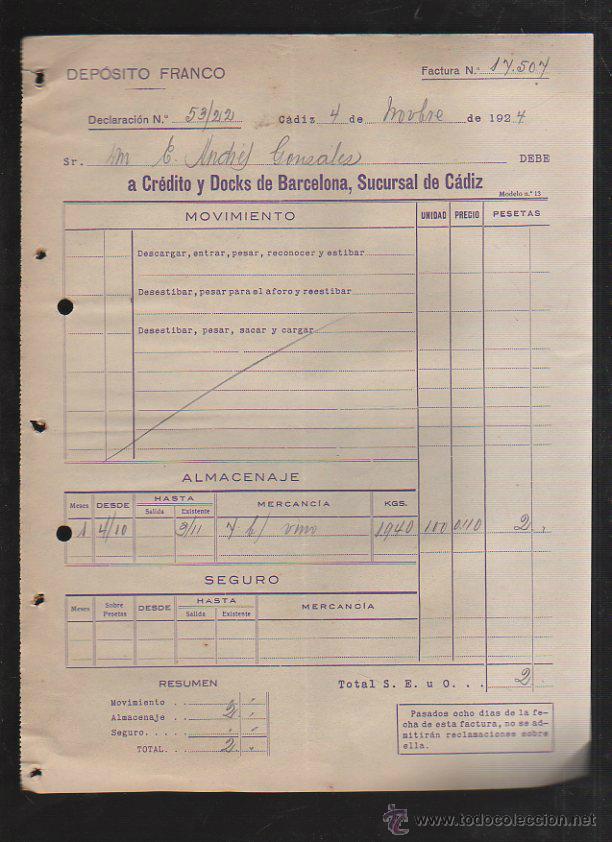 DEPÓSITO FRANCO
Factura N.º 17.507
Declaración N.º 53/22 Cádiz 4 de Novbre de 1924
Sr. E. Andrés Gonsales DEBE
a Crédito y Docks de Barcelona, Sucursal de Cádiz
Modelo n.º 13
MOVIMIENTO UNIDAD PRECIO PESETAS
Descargar, entrar, pesar, reconocer y estibar
Desestibar, pesar para el aforo y reestibar
Desestibar, pesar, sacar y cargar
ALMACENAJE
Meses DESDE HASTA MERCANCÍA KGS.
Salida Existente
1 4/10 3/11 7 b/ vino 1940 100 0,10 2
SEGURO
Meses Sobre Pesetas DESDE HASTA MERCANCÍA
Salida Existente
RESUMEN
Total S. E. u O. . . 2
Movimiento . .
Almacenaje . . 2
Seguro. . . . .
TOTAL. . . 2
Pasados ocho días de la fe-
cha de esta factura, no se ad-
mitirán reclamaciones sobre
ella.
www.todocoleccion.net